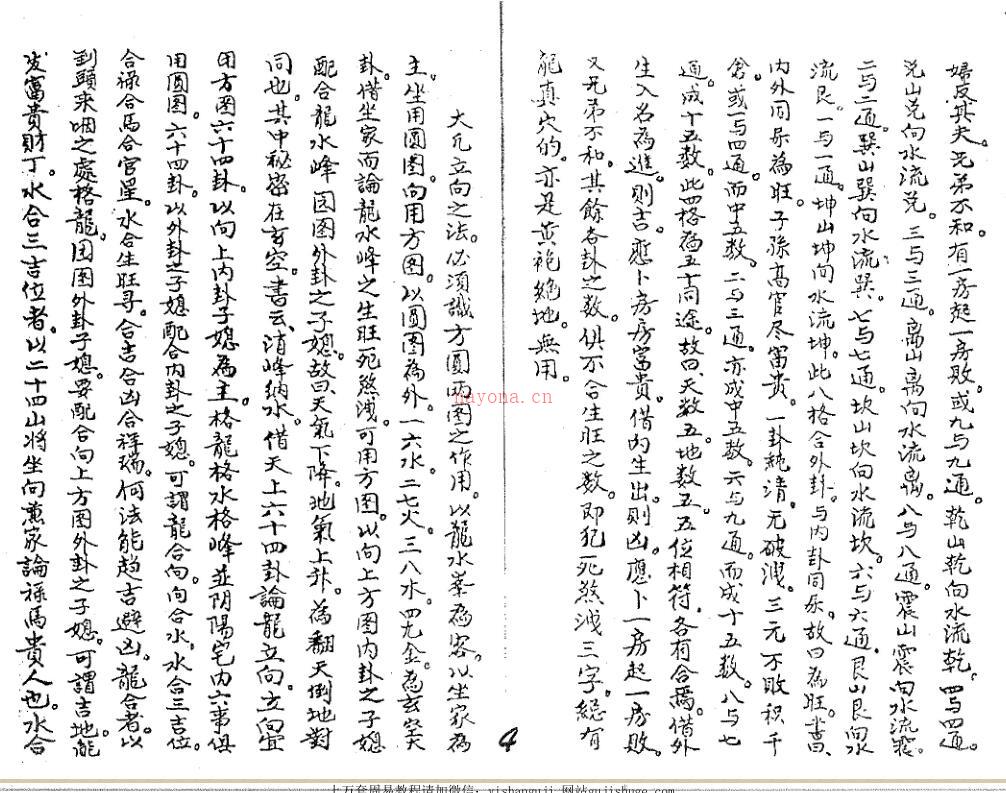 婦反其夫。兄弟不和。有一房起一房敗。或九与九通。乾山乾向水流乾。四与四通。
兑山兑向水流兑。三与三通。离山离向水流离。八与八通。震山震向水流震。
二与二通。巽山巽向水流巽。七与七通。坎山坎向水流坎。六与六通。艮山艮向水
流艮。一与一通。坤山坤向水流坤。此八格合外卦。与内卦同氣。故曰為旺。書曰、
内外同氣為旺。子孫高官尽富貴。一卦純清。无破洩。三元不敗积千
倉。或一与四通。而中五数。二与三通。亦成中五数。六与九通。而成十五数。八与七
通。成十五数。此四格為五十同途。故曰、天数五。地数五。五位相符。各有合焉。借外
生入名為進。則吉。應卜房房富貴。借内生出。則凶。應卜一房起一房敗。
又兄弟不和。其餘各卦之数。俱不合生旺之数。即犯死煞洩三字。総有
龍真穴的。亦是黄袍絶地。無用。
大凡立向之法。必須識方圓兩图之作用。以龍水峯為客。以坐家為
主。坐用圓图。向用方图。以圓图為外。一六水。二七火。三八木。四九金。為玄空天
卦。借坐家而論龍水峰之生旺死煞洩。可用方图。以向上方图内卦之子媳
配合龍水峰圓图外卦之子媳。故曰天氣下降。地氣上升。為翻天倒地對
同也。其中秘密在玄空。書云、消峰納水。借天上六十四卦論龍立向。立向宜
用方图六十四卦。以向上内卦子媳為主。格龍格水格峰並阴陽宅内六事俱
用圓图。六十四卦。以外卦之子媳配合内卦之子媳。可謂龍合向。向合水。水合三吉位。
合禄合馬合官星。水合生旺寻。合吉合凶合祥瑞。何法能趋吉避凶。龍合者。以
到頭来咽之處格龍。圓图外卦子媳。要配合向上方图外卦之子媳。可謂吉地。能
发富貴財丁。水合三吉位者。以二十四山將坐向煎家論禄馬貴人也。水合
4
nayona.cn
上万套周易教程请加微信：yishanguji 网站gujishuge.com